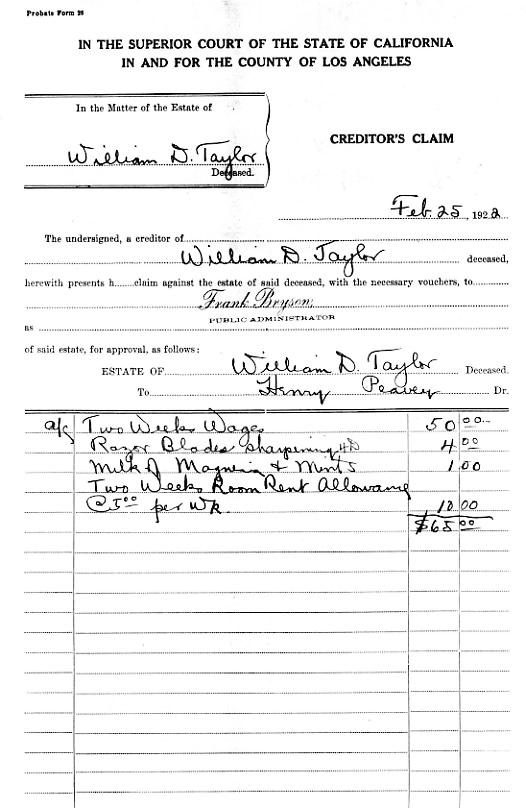 Probate Form 26
IN THE SUPERIOR COURT OF THE STATE OF CALIFORNIA
IN AND FOR THE COUNTY OF LOS ANGELES
In the Matter of the Estate of
William D. Taylor
Deceased.
CREDITOR'S CLAIM
Feb. 25, 1922
The undersigned, a creditor of
William D. Taylor deceased,
herewith presents h......claim against the estate of said deceased, with the necessary vouchers, to
Frank Bryson,
PUBLIC ADMINISTRATOR
as
of said estate, for approval, as follows:
ESTATE OF William D. Taylor Deceased.
To Henry Peavey Dr.
a/c Two Weeks Wages 50 00
Razor Blades sharpening 4 00
Milk of Magnesia & Mints 1 00
Two Weeks Room Rent Allowance
@ 5 00 per Wk. 10 00
$65 00